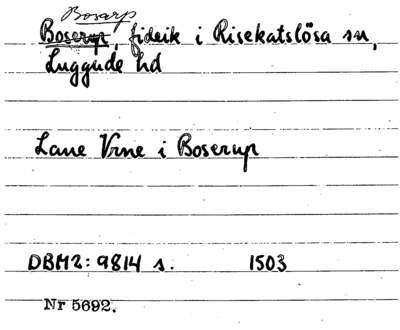 Bosarp
Boserup, fideik i Risekatslösa sn,
Luggude hd
Lane Vrne i Boserup
DBM2: 9814 s. 1503
Nr 5692.